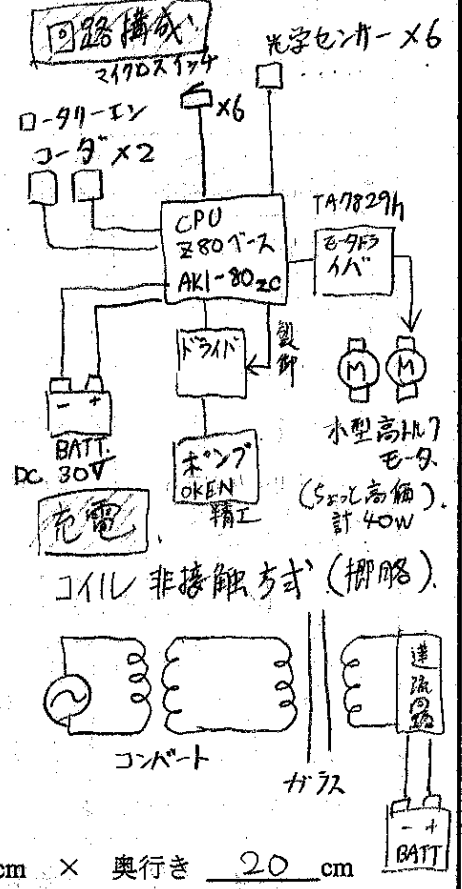 回路構成
マイクロスイッチ
×6
光学センサー ×6
ロータリーエン
コーダ ×2
CPU
Z80ベース
AKI-80
TA7829h
モータドラ
イバ
ドライバ
制御
M
M
- +
BATT.
DC 30V
ポンプ
OKEN
精工
小型高トルク
モータ
(ちょっと高価)
計 40W
充電
コイル 非接触方式
コンバート
ガラス
流
回路
- +
BATT
cm × 奥行き 20 cm